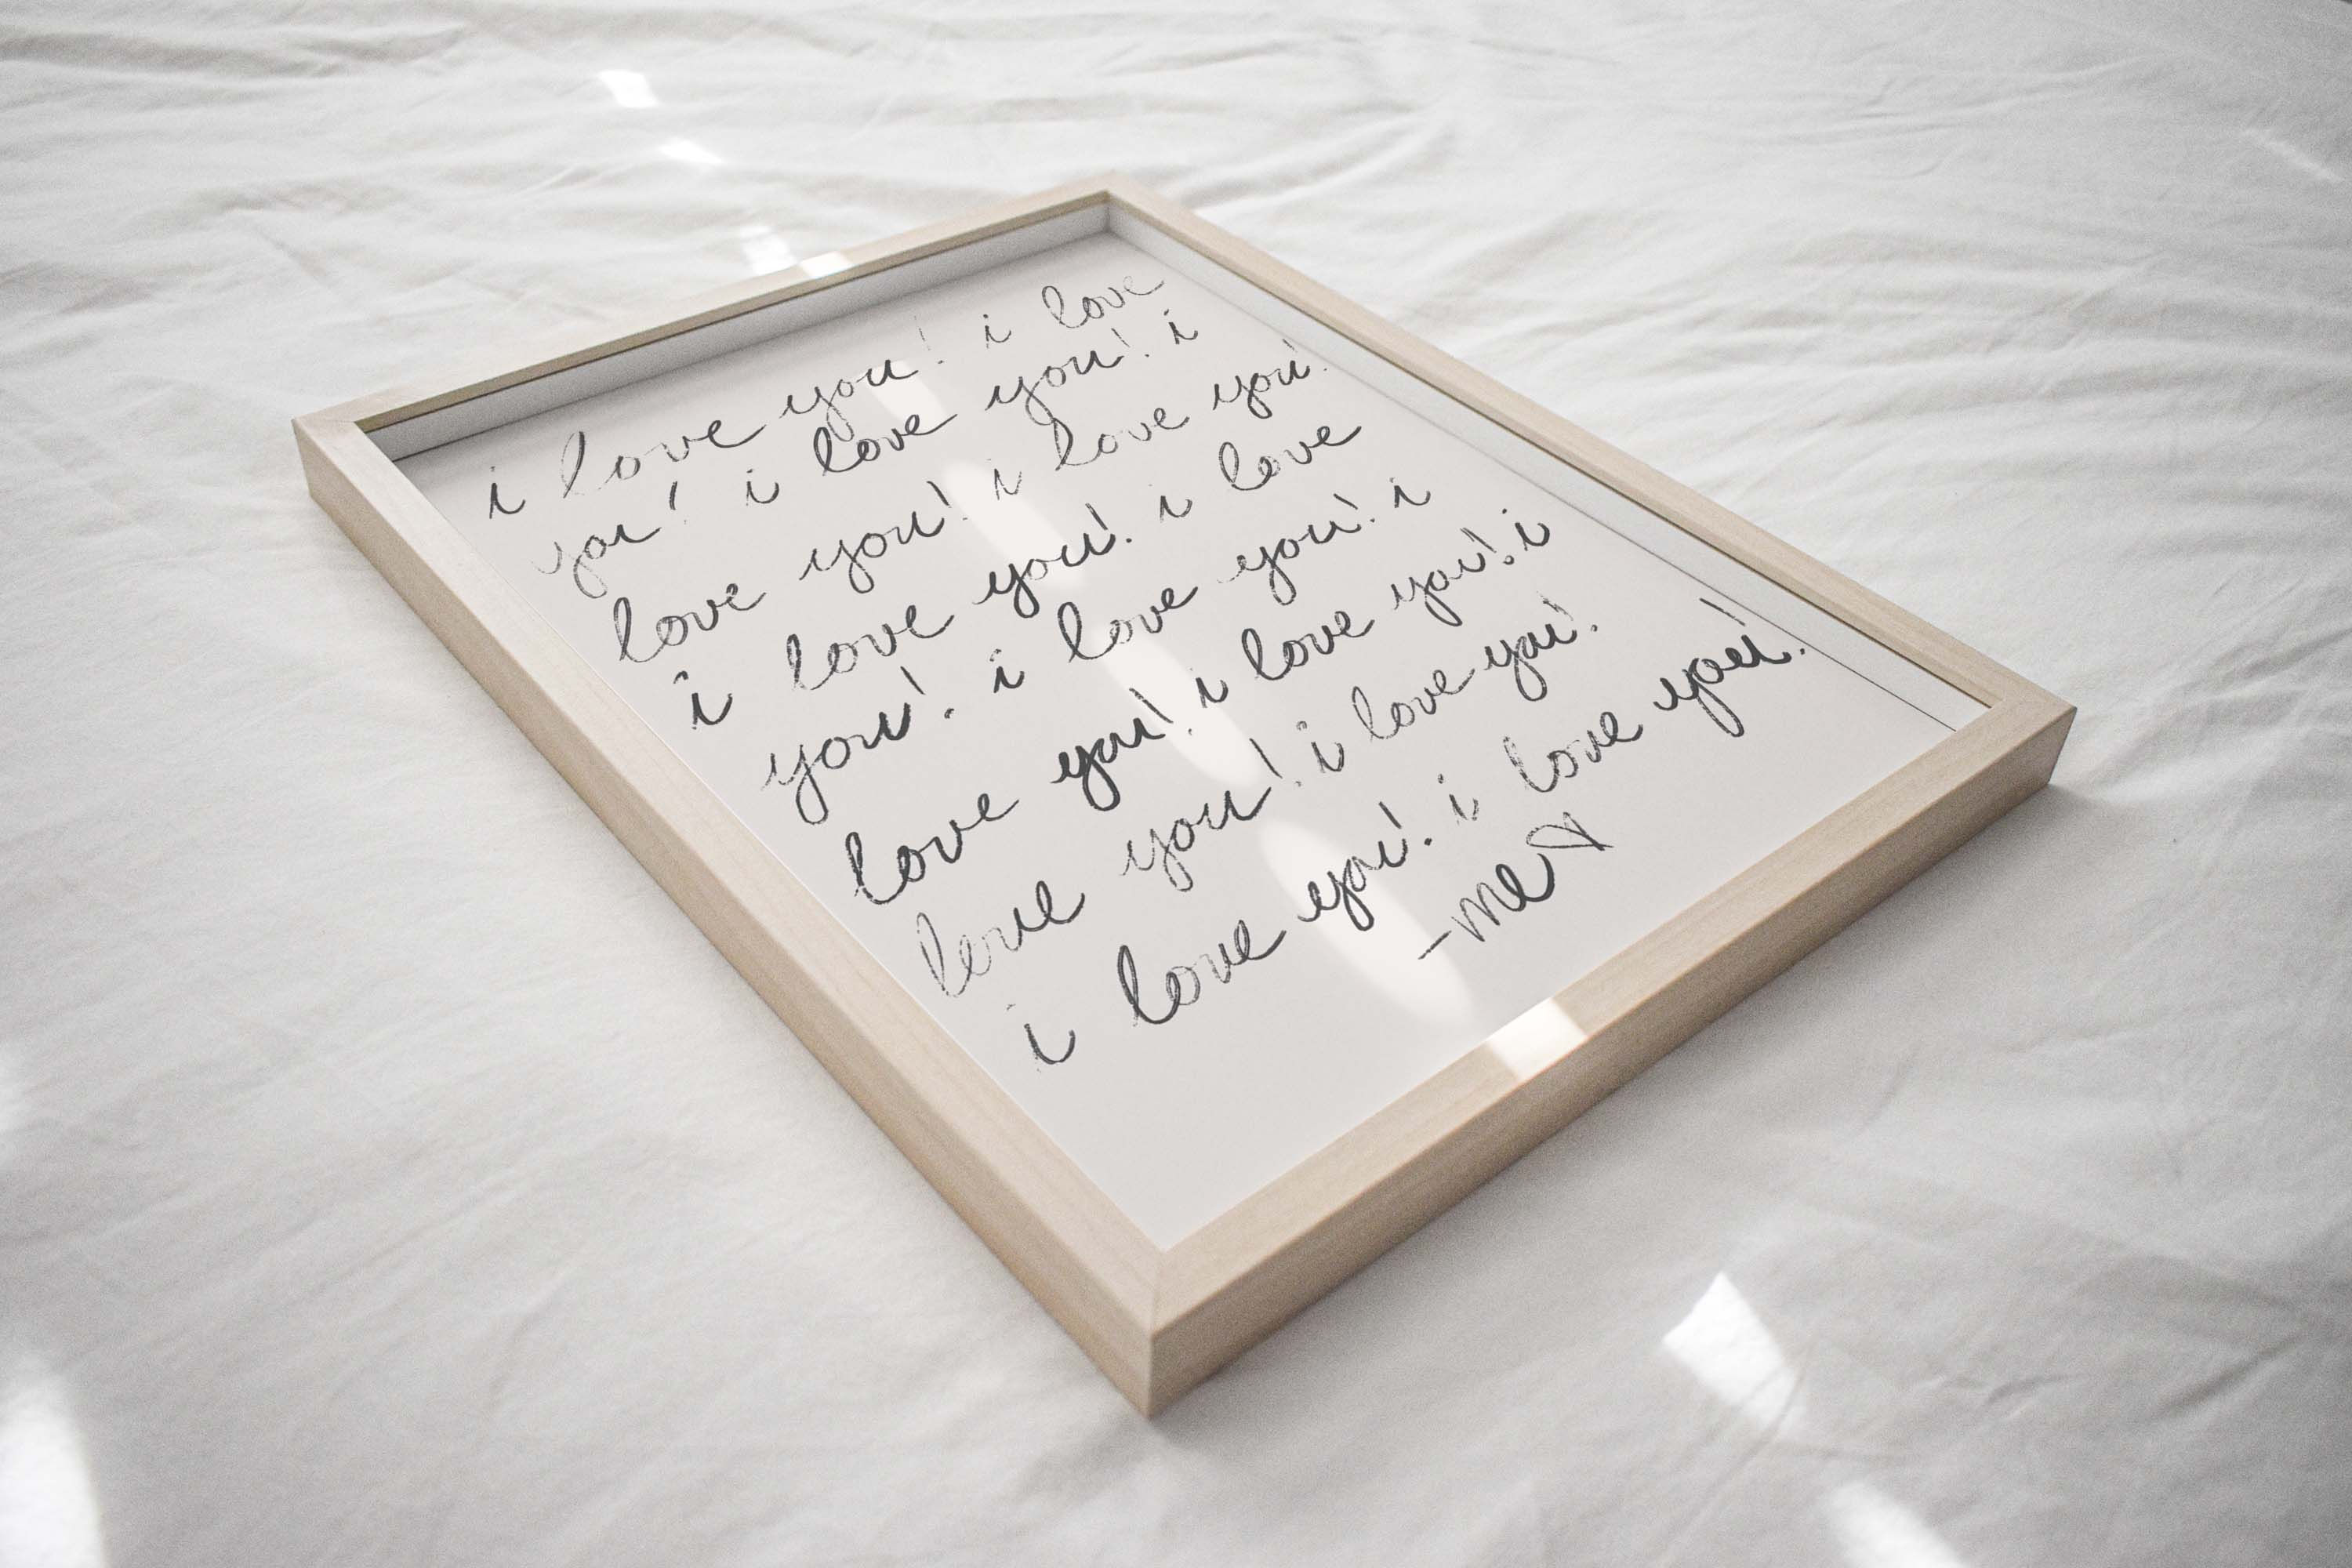 i love you! i love
you! i love you! i
love you! i love you!
i love you! i love
you! i love you! i
love you! i love you! i
love you! i love you!
i love you! i love you!
-me